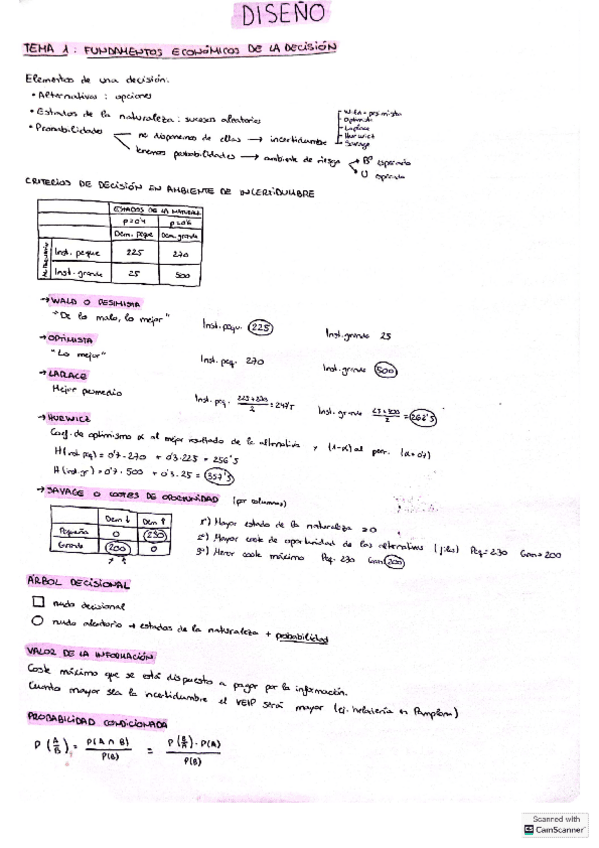 DISEÑO
TEMA 1: FUNDAMENTOS ECONÓMICOS DE LA DECISIÓN
Elementos de una decisión:
• Alternativas: opciones
• Estados de la naturaleza: sucesos aleatorios
• Probabilidades
no disponemos de ellas → incertidumbre
Wald o pesimista
Optimista
Laplace
Hurwicz
Savage
tenemos probabilidades → ambiente de riesgo
Bº esperado
U esperada
CRITERIOS DE DECISIÓN EN AMBIENTE DE INCERTIDUMBRE
ESTADOS DE LA NATURAL
p=0'4 p=0'6
Dem. peque Dem. grande
Inst. peque 225 270
Inst. grande 25 500
→ WALD O PESIMISTA
"De lo malo, lo mejor" Inst. pequ. 225 Inst. grande 25
→ OPTIMISTA
"Lo mejor" Inst. peq. 270 Inst. grande 500
→ LAPLACE
Mejor promedio Inst. peq. = 247'5 Inst. grande = 262'5
→ HURWICZ
Coef. de optimismo α al mejor resultado de la alternativa y (1-α) al peor.
H (inst. peq) = 0'7 · 270 + 0'3 · 225 = 256'5
H (inst. gr) = 0'7 · 500 + 0'3 · 25 = 357'5
→ SAVAGE O COSTES DE OPORTUNIDAD (por columnas)
Dem ↓ Dem ↑
Pequeña 0 230
Grande 200 0
1º) Mayor estado de la naturaleza = 0
2º) Mayor coste de oportunidad de las alternativas (filas) Peq = 230 Gran = 200
3º) Menor coste máximo Peq. 230 Gran 200
ÁRBOL DECISIONAL
nudo decisional
nudo aleatorio → estados de la naturaleza + probabilidad
VALOR DE LA INFORMACIÓN
Coste máximo que se está dispuesto a pagar por la información.
Cuanto mayor sea la incertidumbre el VEIP será mayor (ej. heladería en Pamplona)
PROBABILIDAD CONDICIONADA
P (A/B) = P(A ∩ B) / P(B) = P (B/A) · P(A) / P(B)
Scanned with
CamScanner